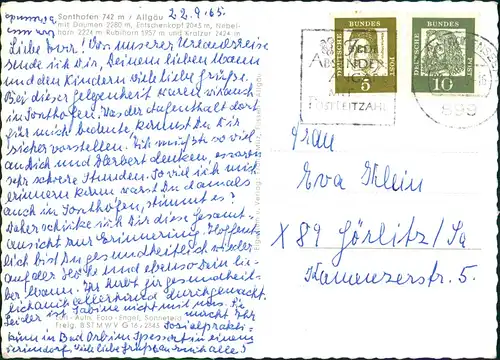 Sonthofen 742 m / Allgäu
mit Daumen 2280 m, Entschenkopf 2043 m, Nebel-
horn 2224 m Rubihorn 1957 m und Kratzer 2424 m
22.9.65
Liebe Eva! Von unserer Urlaubsreise
sende ich Dir, Deinem lieben Mann
und den Kindern viele liebe Grüße.
Bei dieser Gelegenheit waren wir auch
in Sonthofen. Was der Aufenthalt dort
für mich bedeute kannst Du Dir
sicher vorstellen. Ich mußte so viel
an Dich und Herbert denken, es waren
sehr schwere Stunden. So viel ich mich
erinnern kann warst Du damals
auch in Sonthofen, stimmt es?
Daher schicke ich Dir diese Gesamt-
ansicht zur Erinnerung. Hoffent-
lich bist Du gesundheitlich wieder
auf der Höhe und ebenso Dein lie-
ber Mann. Ihr habt ja gesundheit-
lich auch allerhand durchgemacht.
Leider ist Sabine nicht mit uns. Sie
macht ihr
Sozialprakti-
kum in Bad Orb im Spessart in einem
viele liebe Grüße Euch alle
Aufn. Foto-Engel, Sonneteid
Freig. BSTMWV G
DEUTSCHE BUNDES POST
5
DEUTSCHE BUNDES POST
10
JEDE
ABSENDER-
ANGABE
MIT
POSTLEITZAHL
899
Frau
Eva Klein
X 89 Görlitz/Sa
Kamenzerstr. 5.